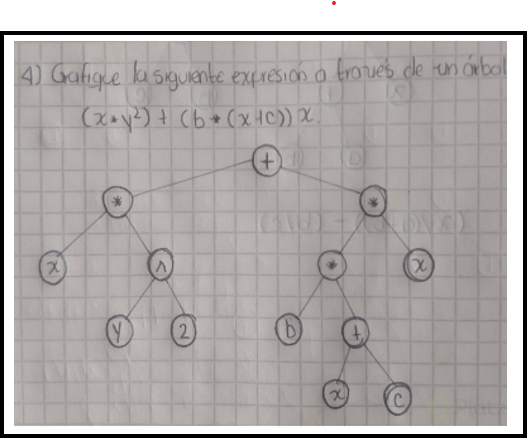 4) Grafique la siguiente expresión a través de un árbol
(x*y²) + (b*(x+c)) x.
+
* *
x ^ * x
y 2 b +
x c